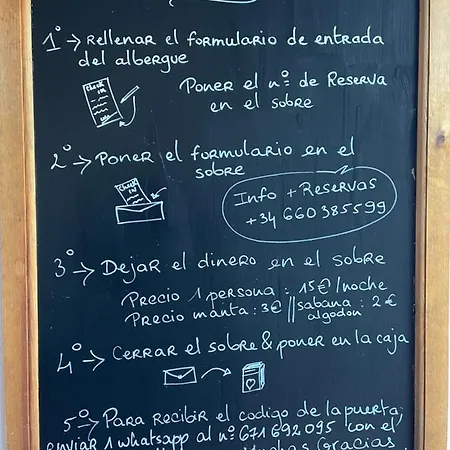 1º → Rellenar el formulario de entrada
del albergue
Check
in
Poner el nº de Reserva
en el sobre
2º → Poner el formulario en el
sobre
Check
in
Info + Reservas
+34 660385599
3º → Dejar el dinero en el sobre
Precio 1 persona : 15€/noche
Precio manta : 3€ // sabana : 2€
algodon
4º → Cerrar el sobre & poner en la caja
5º → Para recibir el codigo de la puerta;
enviar 1 whatsapp al nº 671 692 095 con el
Muchas Gracias